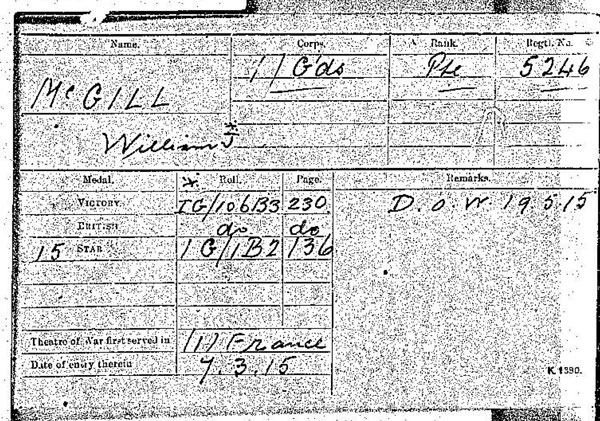 Name. Corps. Rank. Regtl. No.
I / G'ds Pte 5246
McGILL
William J
Medal. Roll. Page. Remarks.
VICTORY IG/106B3 230. D. O. W 19 5 15
BRITISH do do
15 STAR IG/1B2 136
Theatre of War first served in (1) France
Date of entry therein 7.3.15
K. 1390.